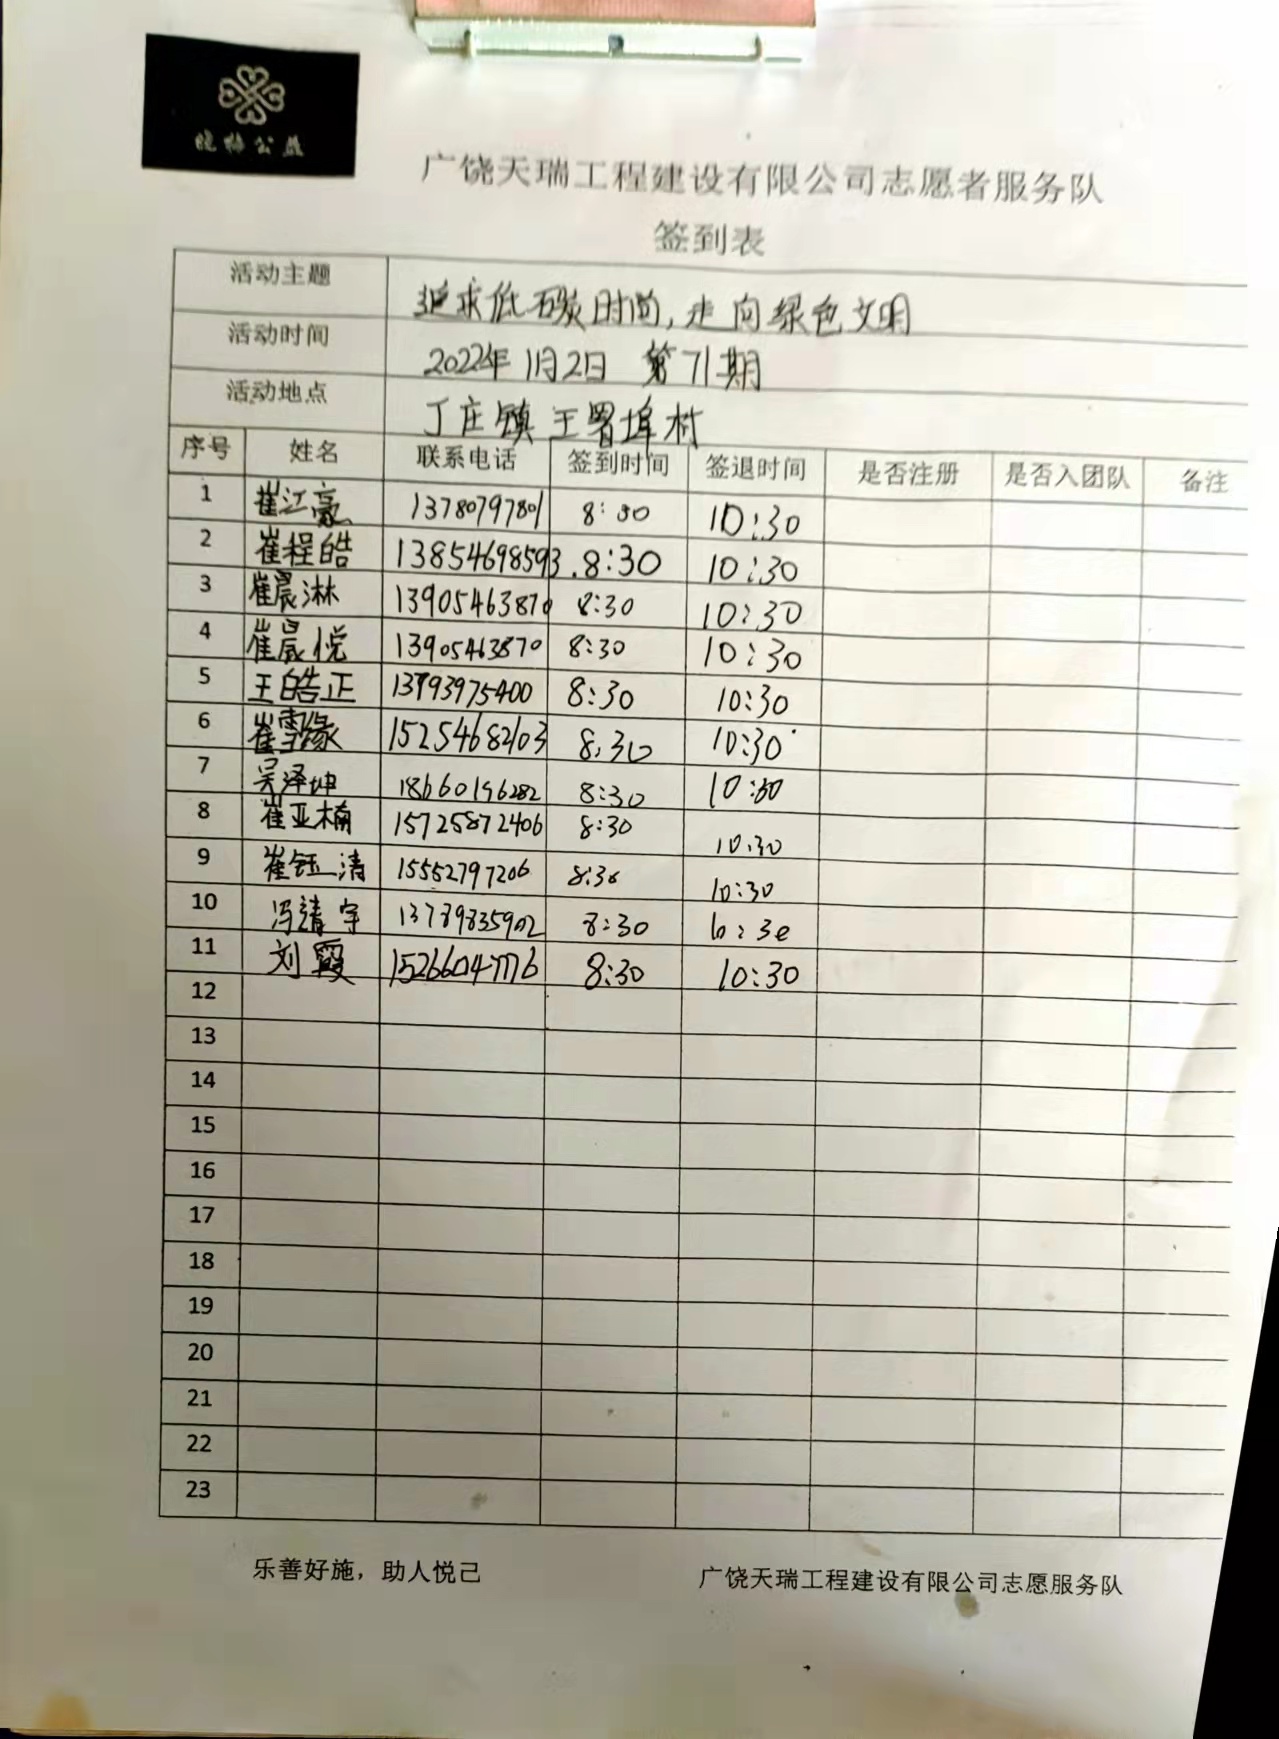 晓梅公益
广饶天瑞工程建设有限公司志愿者服务队
签到表
活动主题 追求低碳时尚,走向绿色文明
活动时间 2022年1月2日 第71期
活动地点 丁庄镇王署埠村
序号 姓名 联系电话 签到时间 签退时间 是否注册 是否入团队 备注
1 崔江豪 1378079780 8:30 10:30
2 崔程皓 13854698593 8:30 10:30
3 崔晨淋 13905463870 8:30 10:30
4 崔晨悦 13905463870 8:30 10:30
5 王皓正 13793975400 8:30 10:30
6 崔雪缘 15254682103 8:30 10:30
7 吴泽坤 18660196282 8:30 10:30
8 崔亚楠 15725872406 8:30 10:30
9 崔钰清 15552797206 8:30 10:30
10 冯靖宇 13789835902 8:30 10:30
11 刘霞 15266047776 8:30 10:30
12
13
14
15
16
17
18
19
20
21
22
23
乐善好施，助人悦己 广饶天瑞工程建设有限公司志愿服务队